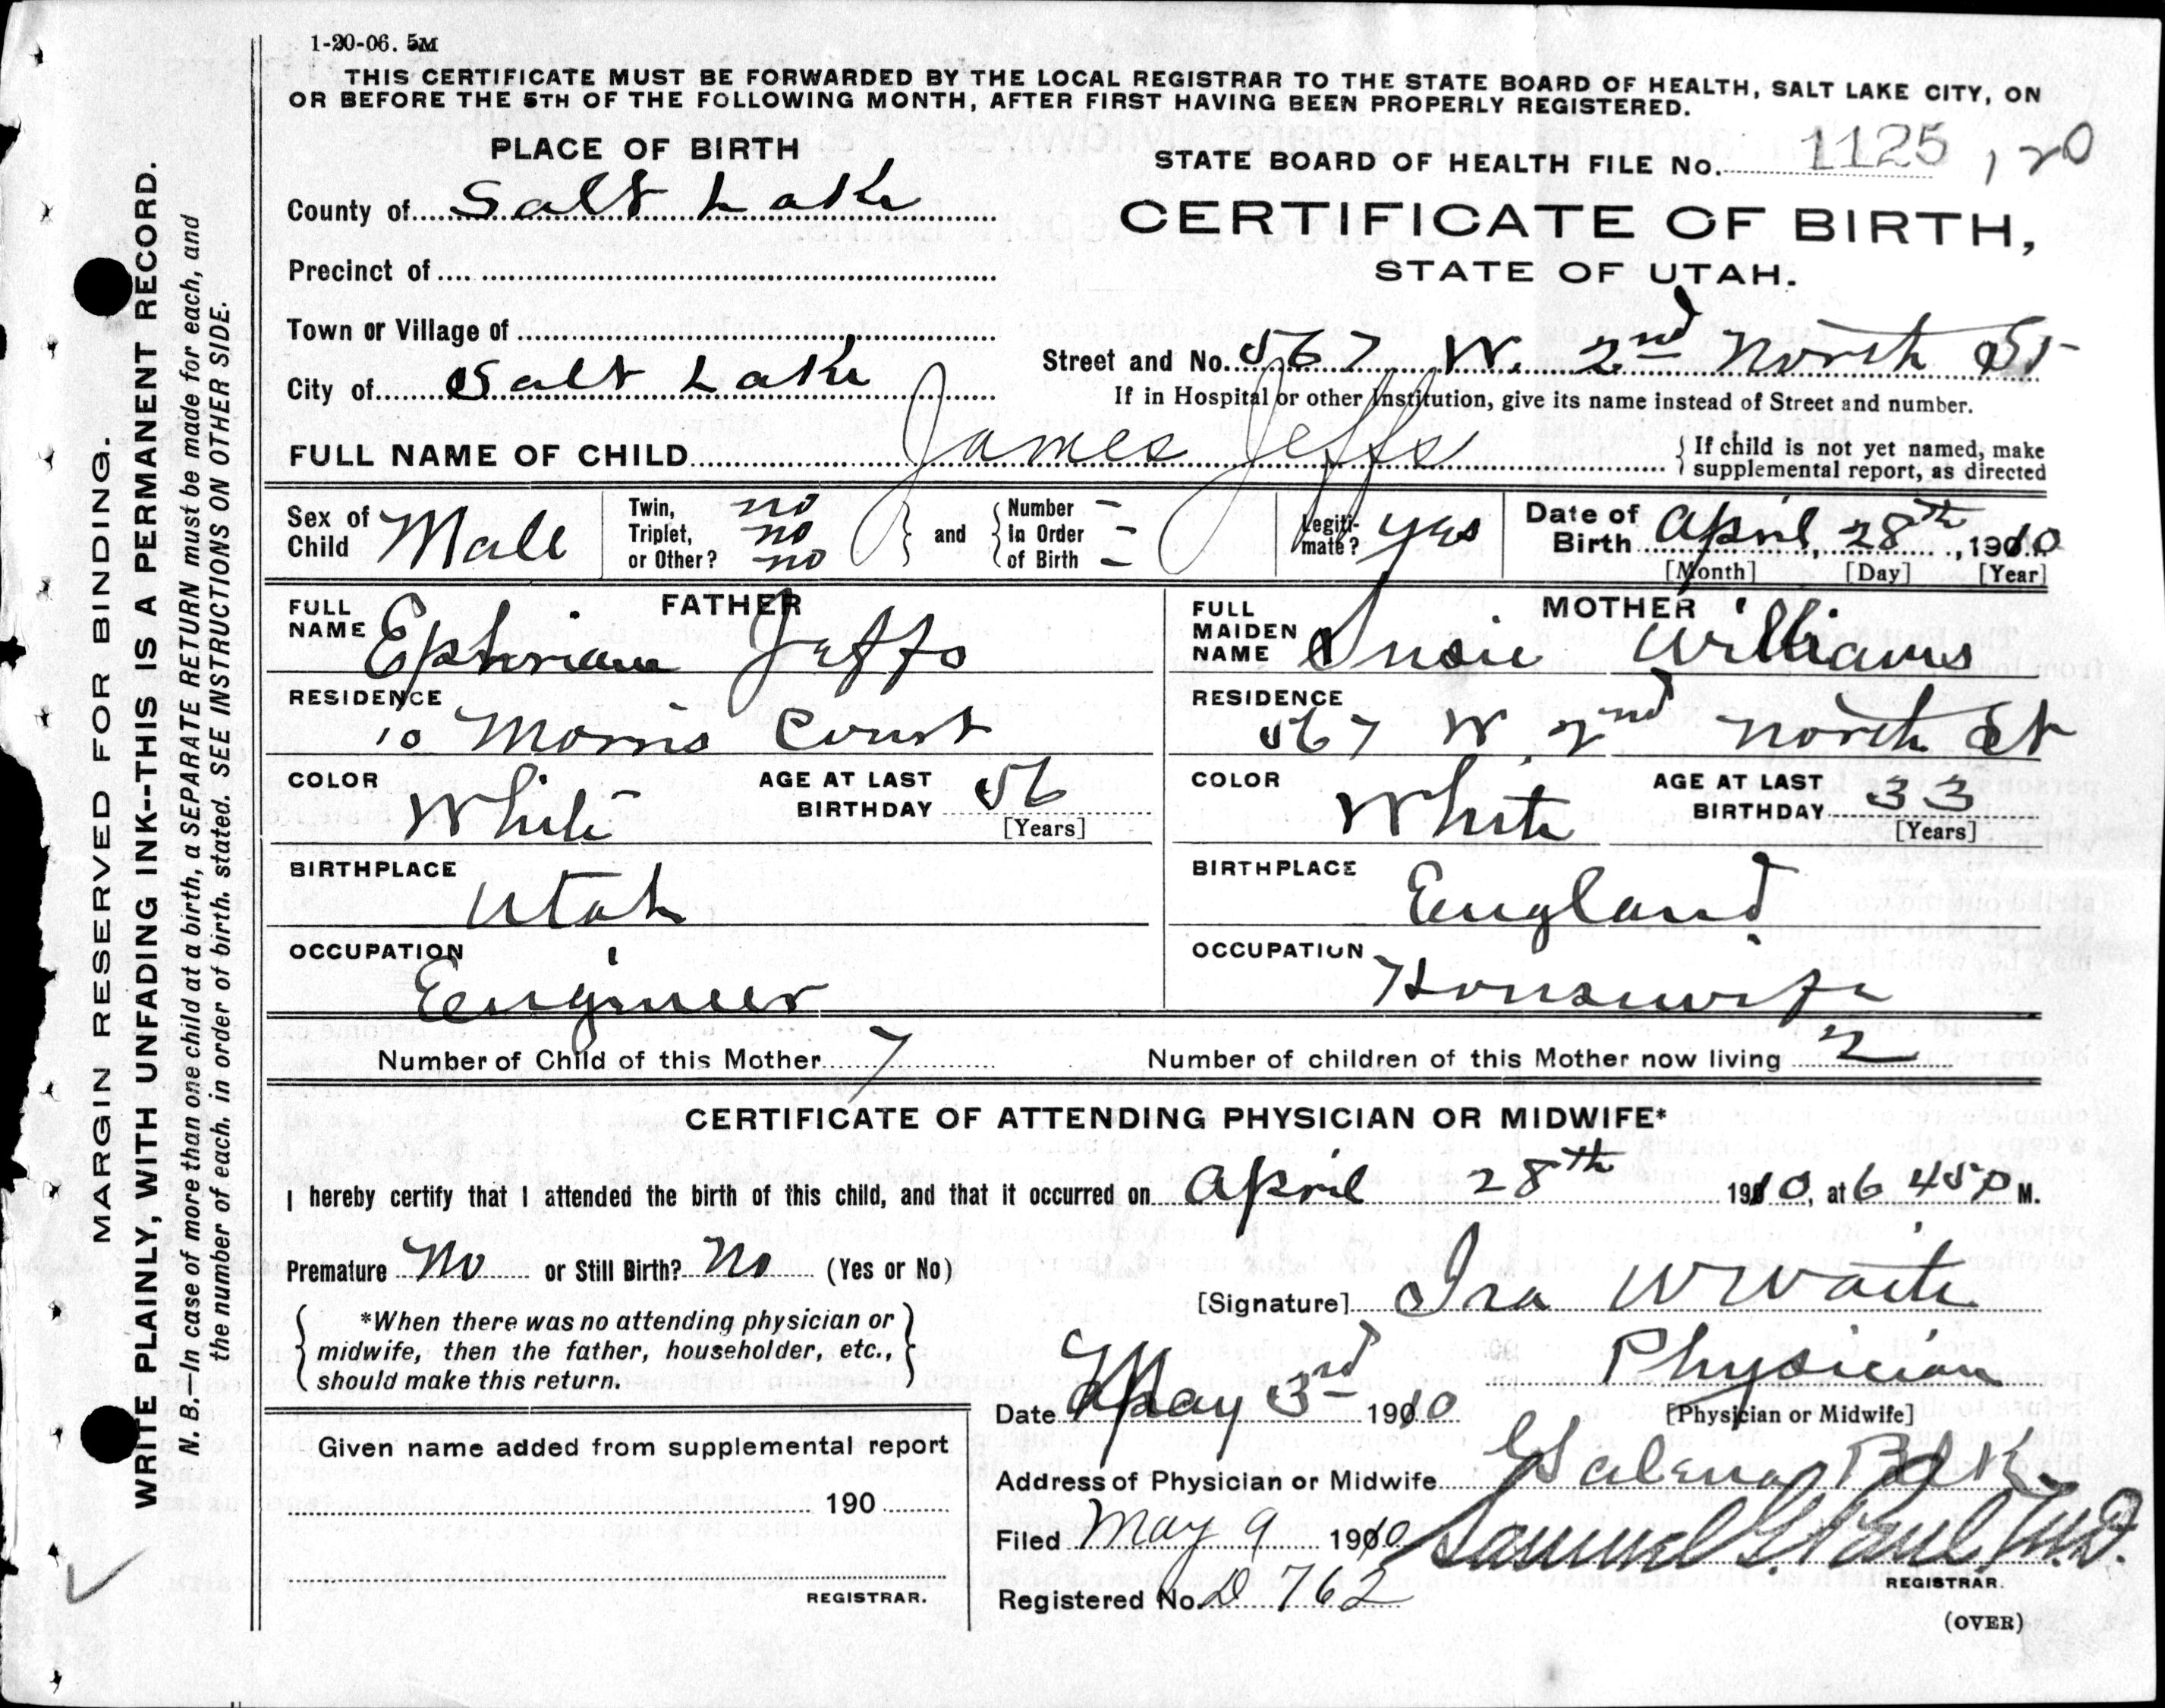 1-20-06. 5M
THIS CERTIFICATE MUST BE FORWARDED BY THE LOCAL REGISTRAR TO THE STATE BOARD OF HEALTH, SALT LAKE CITY, ON
OR BEFORE THE 5TH OF THE FOLLOWING MONTH, AFTER FIRST HAVING BEEN PROPERLY REGISTERED.
PLACE OF BIRTH
STATE BOARD OF HEALTH FILE No. 1125 120
County of Salt Lake
CERTIFICATE OF BIRTH,
STATE OF UTAH.
Precinct of
Town or Village of
Street and No. 567 W. 2nd North St
City of Salt Lake
If in Hospital or other Institution, give its name instead of Street and number.
FULL NAME OF CHILD James Jeffs
If child is not yet named, make
supplemental report, as directed
Sex of Child Male
Twin, no
Triplet, no
or Other? no
and
Number –
In Order –
of Birth –
Legiti-
mate? yes
Date of Birth April, 28th, 1910
[Month] [Day] [Year]
FATHER
FULL NAME Ephriam Jeffs
RESIDENCE
10 Morris Court
COLOR White
AGE AT LAST BIRTHDAY 56
[Years]
BIRTHPLACE
Utah
OCCUPATION
Engineer
MOTHER
FULL MAIDEN NAME Susie Williams
RESIDENCE
567 W 2nd North St
COLOR White
AGE AT LAST BIRTHDAY 33
[Years]
BIRTHPLACE
England
OCCUPATION
Housewife
Number of Child of this Mother 7
Number of children of this Mother now living 2
CERTIFICATE OF ATTENDING PHYSICIAN OR MIDWIFE*
I hereby certify that I attended the birth of this child, and that it occurred on April 28th 1910, at 6 45 P M.
Premature No or Still Birth? No (Yes or No)
[Signature] Ira W Waite
*When there was no attending physician or
midwife, then the father, householder, etc.,
should make this return.
Physician
[Physician or Midwife]
Date May 3rd 1910
Given name added from supplemental report
190
REGISTRAR.
Address of Physician or Midwife Galena
Filed May 9 1910 Samuel G. Paul, M.D.
REGISTRAR.
Registered No. D 762
(OVER)
MARGIN RESERVED FOR BINDING.
WRITE PLAINLY, WITH UNFADING INK--THIS IS A PERMANENT RECORD.
N. B.—In case of more than one child at a birth, a SEPARATE RETURN must be made for each, and
the number of each, in order of birth, stated. SEE INSTRUCTIONS ON OTHER SIDE.